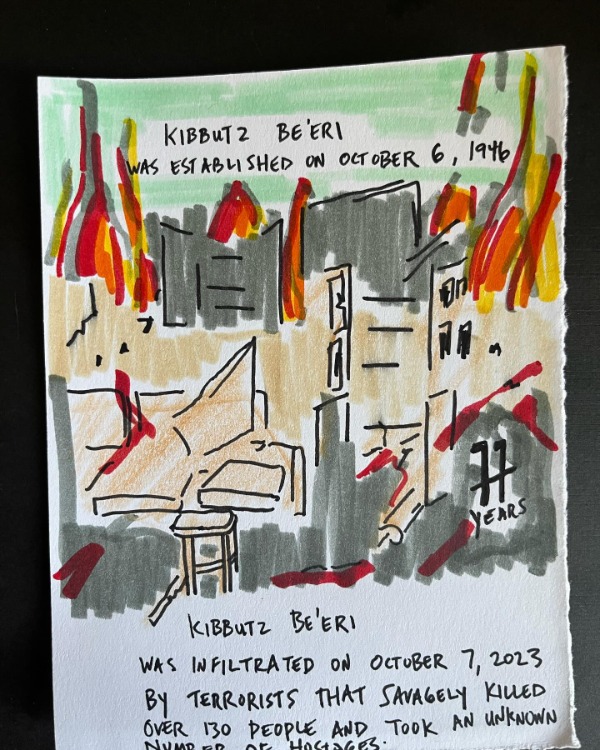 KIBBUTZ BE'ERI
WAS ESTABLISHED ON OCTOBER 6, 1946
77
YEARS
KIBBUTZ BE'ERI
WAS INFILTRATED ON OCTOBER 7, 2023
BY TERRORISTS THAT SAVAGELY KILLED
OVER 130 PEOPLE AND TOOK AN UNKNOWN
NUMBER OF HOSTAGES.